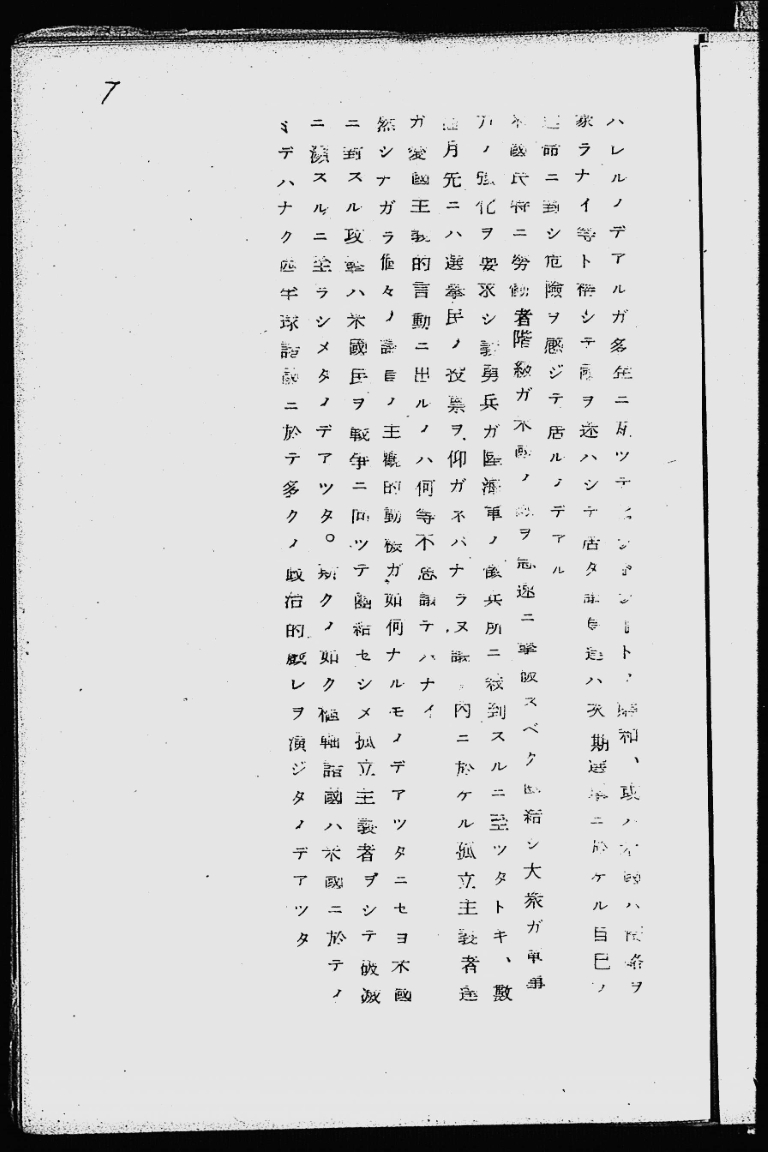 7
ハレルノデアルガ多年ニ亙ツテ ノ 緩和、或ハ米國ハ 略ヲ
家ラナイ等ト稱シテ ヲ迷ハシテ居タ議員達ハ次期選擧ニ於ケル自己ノ
運命ニ對シ危險ヲ感ジテ居ルノデアル
米國民特ニ勞働者階級ガ米國ノ ヲ急速ニ撃破スベク團結シ大衆ガ軍事
力ノ強化ヲ要求シ義勇兵ガ陸海軍ノ徴兵所ニ殺到スルニ至ツタトキ、數
月先ニハ選擧民ノ投票ヲ仰ガネバナラヌ議 内ニ於ケル孤立主義者達
ガ愛國主義的言動ニ出ルノハ何等不思議デハナイ
然シナガラ個々ノ議員ノ主觀的動機ガ如何ナルモノデアツタニセヨ米國
ニ對スル攻撃ハ米國民ヲ戰爭ニ向ツテ團結セシメ孤立主義者ヲシテ破滅
ニ瀕スルニ至ラシメタノデアツタ。斯クノ如ク樞軸諸國ハ米國ニ於テノ
ミデハナク西半球諸國ニ於テ多クノ政治的戯レヲ演ジタノデアツタ